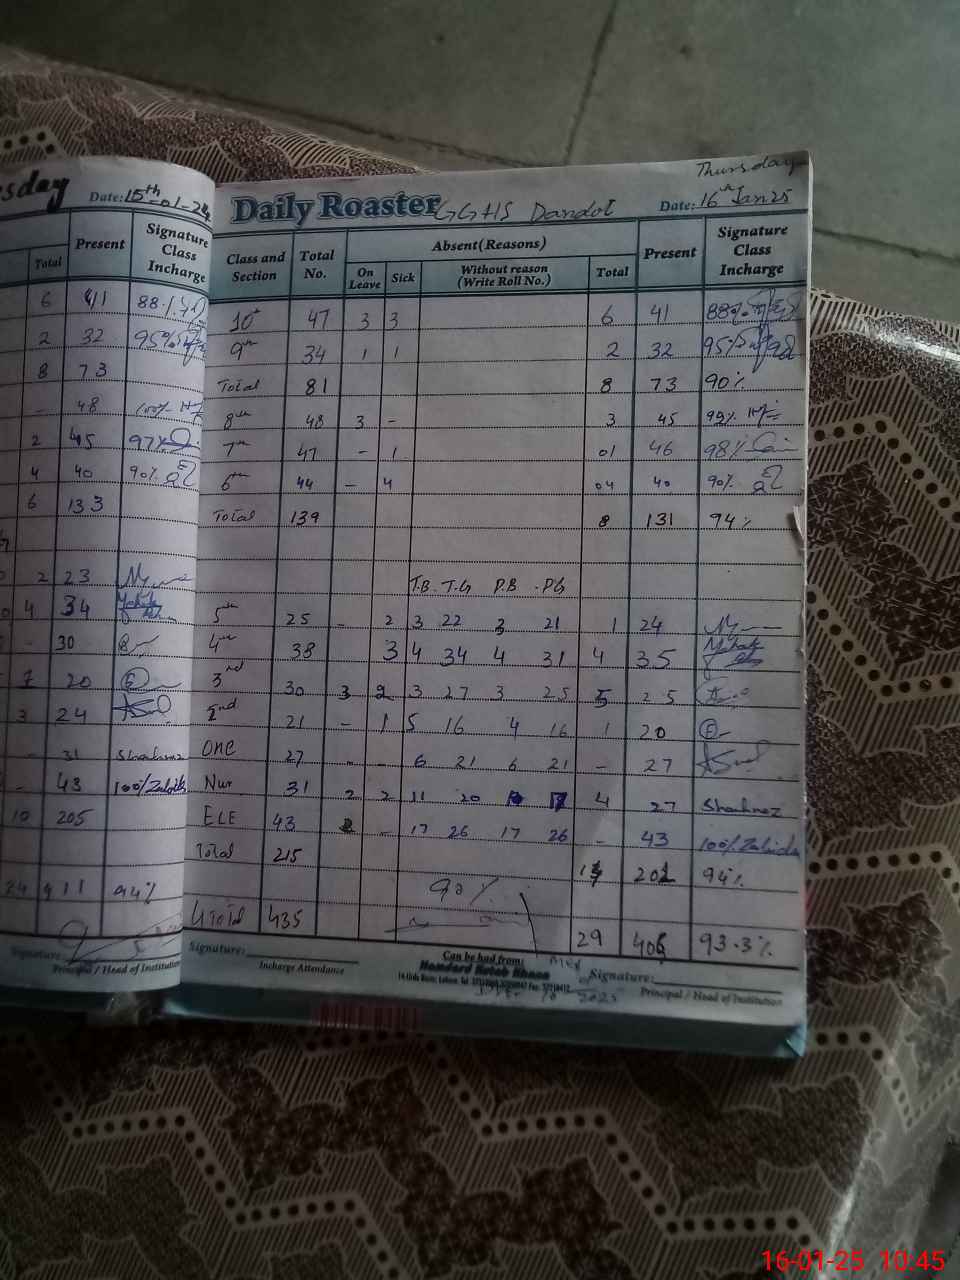 sday
Date: 15th-01-24
Present
Signature
Class
Incharge
Total
6 41 88%
2 32 95%
8 73
- 48 100%
2 45 97%
4 40 90%
6 133
2 23
4 34
- 30
7 20
3 24
- 31 Shahnaz
- 43 100% Zabida
10 205
24 411 94%
Signature:
Principal / Head of Institution
Thursday
Daily Roaster GGHS Dandot Date: 16th Jan 25
Class and Section Total No. Absent(Reasons) Present Signature Class Incharge
On Leave Sick Without reason (Write Roll No.) Total
10th 47 3 3 6 41 88%
9th 34 1 1 2 32 95%
Total 81 8 73 90%
8th 48 3 - 3 45 92%
7th 47 - 1 01 46 98%
6th 44 - 4 04 40 90%
Total 139 8 131 94%
T.B. T.G P.B P.G
5th 25 - 2 3 22 3 21 1 24
4th 38 3 4 34 4 31 4 35
3rd 30 3 2 3 27 3 25 5 25
2nd 21 - 1 5 16 4 16 1 20
One 27 - - 6 21 6 21 - 27
Nur 31 2 2 11 20 17 4 27 Shahnaz
ELE 43 - 17 26 17 26 - 43 100% Zabida
Total 215 13 202 94%
90%
G Total 435 29 406 93.3%
Signature:
Incharge Attendance
Can be had from:
Hamdard Kutab Khana
Signature:
Principal / Head of Institution
2025
16-01-25 10:45